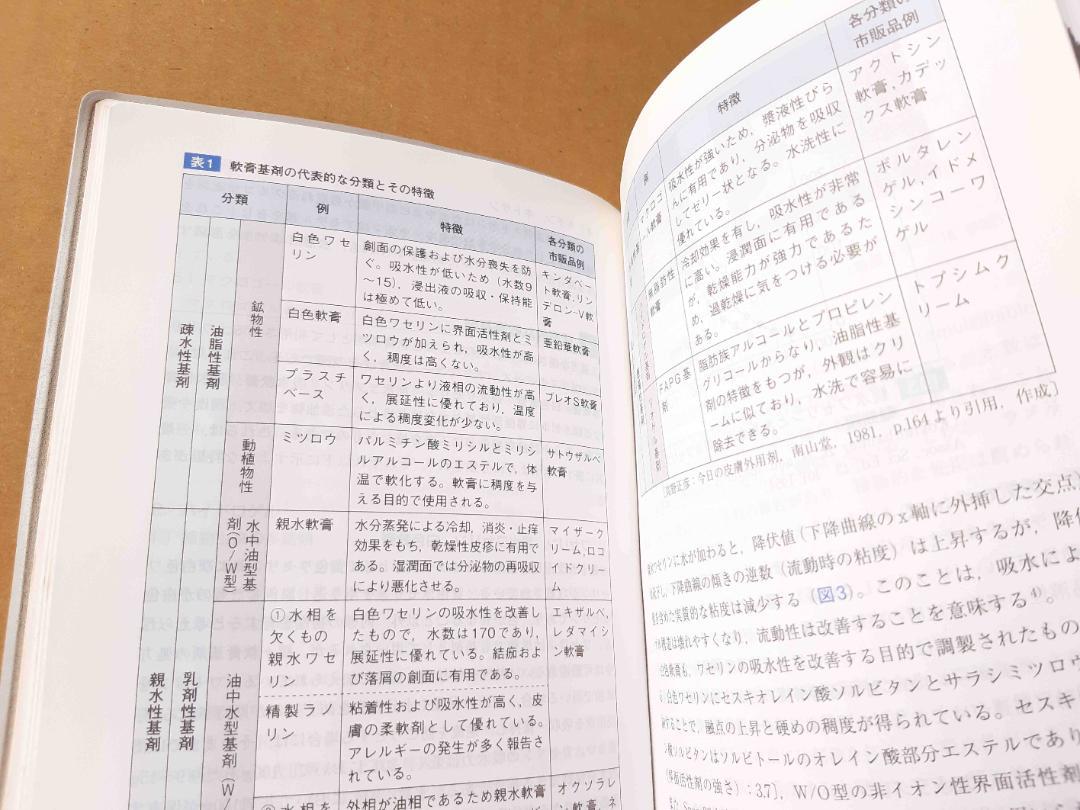 表1 軟膏基剤の代表的な分類とその特徴
分類
例
特徴
各分類の
市販品例
疎水性基剤
油脂性基剤
鉱物性
白色ワセ
リン
創面の保護および水分喪失を防
ぐ。吸水性が低いため（水数9
～15），浸出液の吸収・保持能
は極めて低い。
キンダベー
ト軟膏，リン
デロン-V軟
膏
白色軟膏
白色ワセリンに界面活性剤とミ
ツロウが加えられ，吸水性が高
く，稠度は高くない。
亜鉛華軟膏
プラスチ
ベース
ワセリンより液相の流動性が高
く，展延性に優れており，温度
による稠度変化が少ない。
ブレオS軟膏
動植物性
ミツロウ
パルミチン酸ミリシルとミリシ
ルアルコールのエステルで，体
温で軟化する。軟膏に稠度を与
える目的で使用される。
サトウザルベ
軟膏
親水性基剤
乳剤性基剤
水中油型基
剤（O/W型）
親水軟膏
水分蒸発による冷却，消炎・止痒
効果をもち，乾燥性皮疹に有用で
ある。湿潤面では分泌物の再吸収
により悪化させる。
マイザーク
リーム，ロコ
イドクリー
ム
油中水型基剤（W/
①水相を
欠くもの
親水ワセ
リン
白色ワセリンの吸水性を改善し
たもので，水数は170であり，
展延性に優れている。結痂およ
び落屑の創面に有用である。
エキザルベ，
レダマイシ
ン軟膏
精製ラノ
リン
粘着性および吸水性が高く，皮
膚の柔軟剤として優れている。
アレルギーの発生が多く報告さ
れている。
②水相を
外相が油相であるため親水軟膏
オクソラレ
ン軟膏，ネ
特徴
各分類の
市販品例
吸水性が強いため，漿液性びら
んに有用であり，分泌物を吸収
してゼリー状となる。水洗性に
優れている。
アクトシン
軟膏，カデッ
クス軟膏
冷却効果を有し，吸水性が非常
に高い。浸潤面に有用である
が，乾燥能力が強力であるた
め，過乾燥に気をつける必要が
ある。
ボルタレン
ゲル，イドメ
シンコーワ
ゲル
FAPG基
剤
脂肪族アルコールとプロピレン
グリコールからなり，油脂性基
剤の特徴をもつが，外観はクリ
ームに似ており，水洗で容易に
除去できる。
トプシムク
リーム
：今日の皮膚外用剤，南山堂，1981，p.164より引用，作成〕
ワセリンに水が加わると，降伏値（下降曲線のx軸に外挿した交点）
下降曲線の傾きの逆数（流動時の粘度）は上昇するが，降伏
粘度は減少する（図3）。このことは，吸水によ
構造は壊れやすくなり，流動性は改善することを意味する4)。
ワセリンの吸水性を改善する目的で調製されたもの
白色ワセリンにセスキオレイン酸ソルビタンとサラシミツロウ
ことで，融点の上昇と硬めの稠度が得られている。セスキ
ン酸ソルビタンはソルビトールのオレイン酸部分エステルであり
：3.7]，W/O型の非イオン性界面活性剤